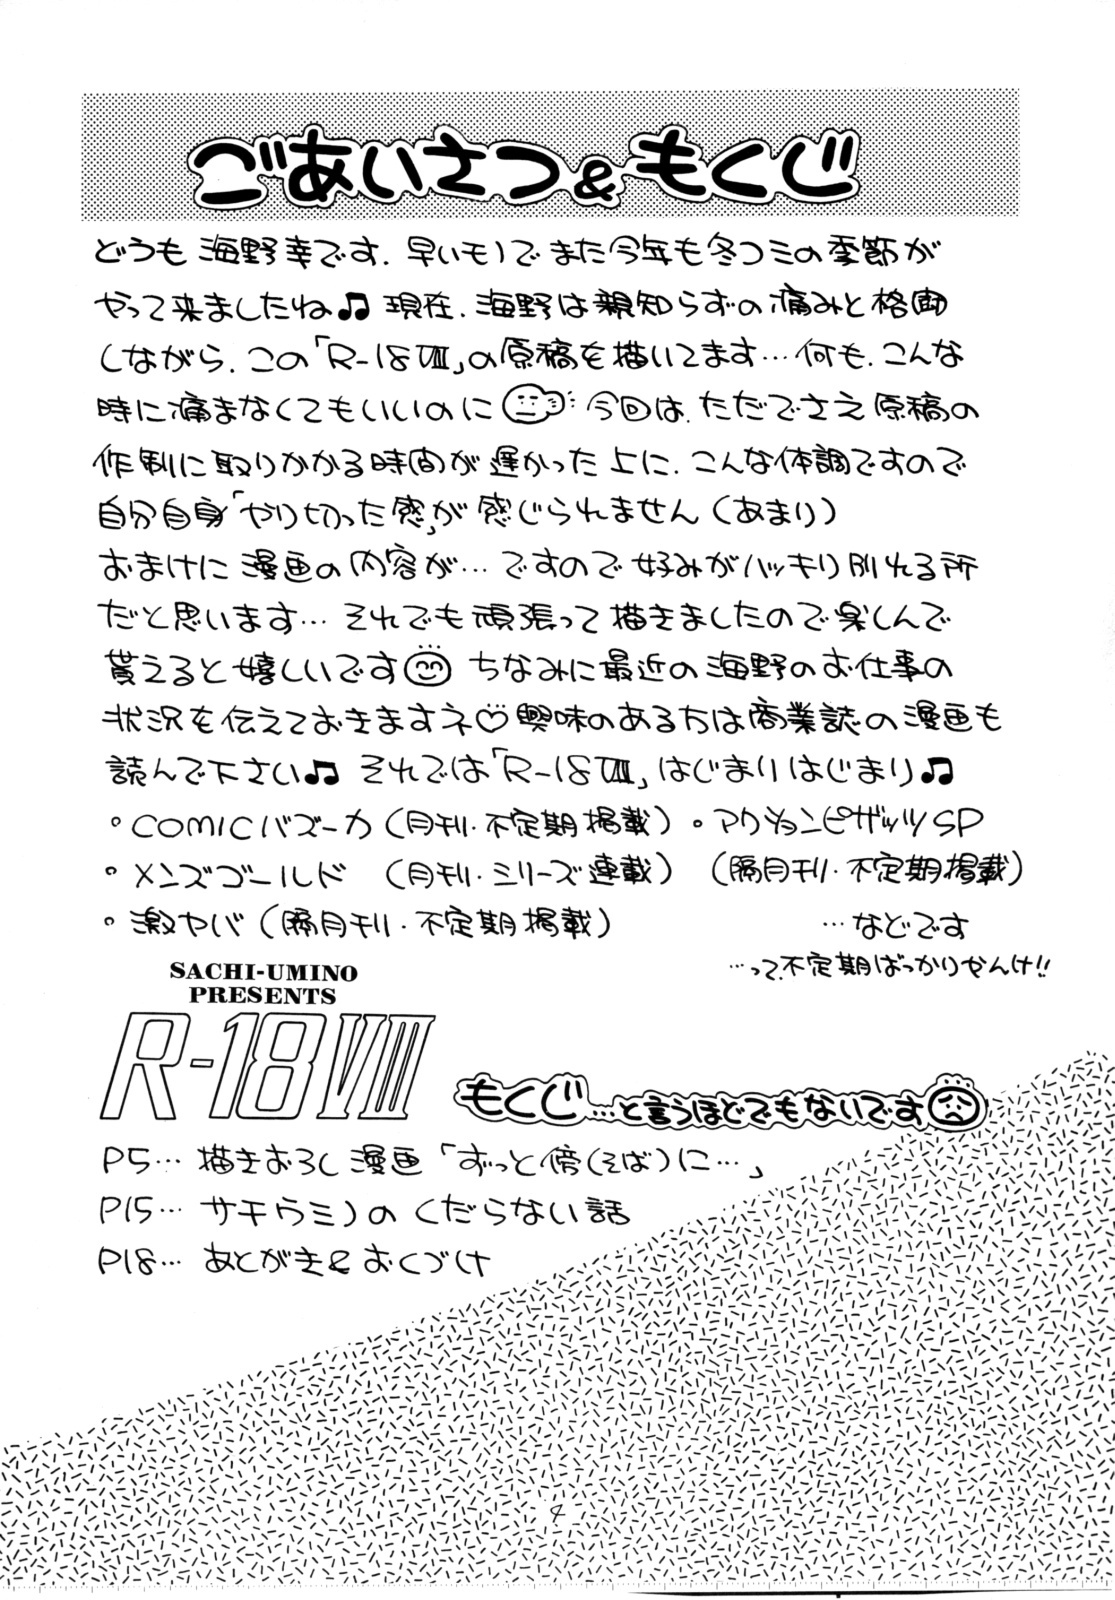 ごあいさつ&もくじ
どうも海野幸です.早いモノでまた今年も冬コミの季節が
やって来ましたね♫現在.海野は親知らずの痛みと格闘
しながら.この「R-18Ⅷ」の原稿を描いてます…何も.こんな
時に痛まなくてもいいのに 今回は.ただでさえ原稿の
作制に取りかかる時間が遅かった上に.こんな体調ですので
自分自身「やり切った感」が感じられません(あまり)
おまけに漫画の内容が…ですので好みがハッキリ別れる所
だと思います…それでも頑張って描きましたので楽しんで
貰えると嬉しいです ちなみに最近の海野のお仕事の
状況を伝えておきますネ♡興味のある方は商業誌の漫画も
読んで下さい♫それでは「R-18Ⅷ」はじまりはじまり♫
°COMICバズーカ(月刊・不定期掲載)°アクションピザッツSP
°メンズゴールド (月刊・シリーズ連載) (隔月刊・不定期掲載)
°激ヤバ(隔月刊・不定期掲載) …などです
…って.不定期ばっかりやんけ!!
SACHI-UMINO
PRESENTS
R-18Ⅷ
もくじ…と言うほどでもないです
P5…描きおろし漫画「ずっと傍(そば)に…」
P15…サチウミノのくだらない話
P18…あとがき&おくづけ
4